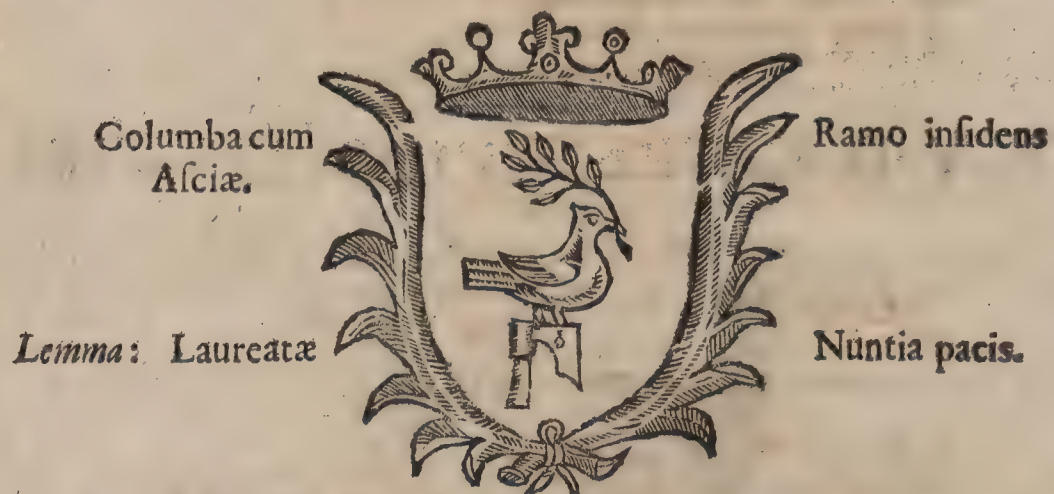 Columba cum Ramo insidens
Asciæ.
Lemma: Laureatæ Nuntia pacis.